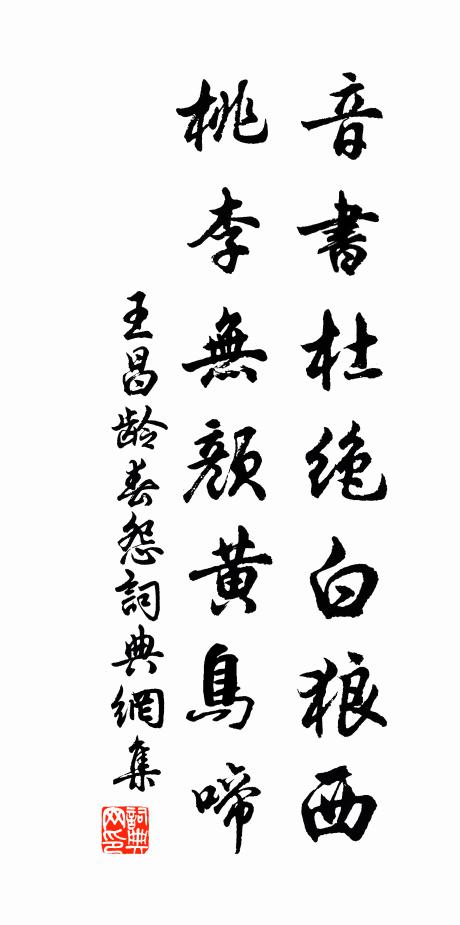 音書杜絶白狼西
桃李無顔黄鳥啼
王昌龄春怨詞典網集
詞典
网印